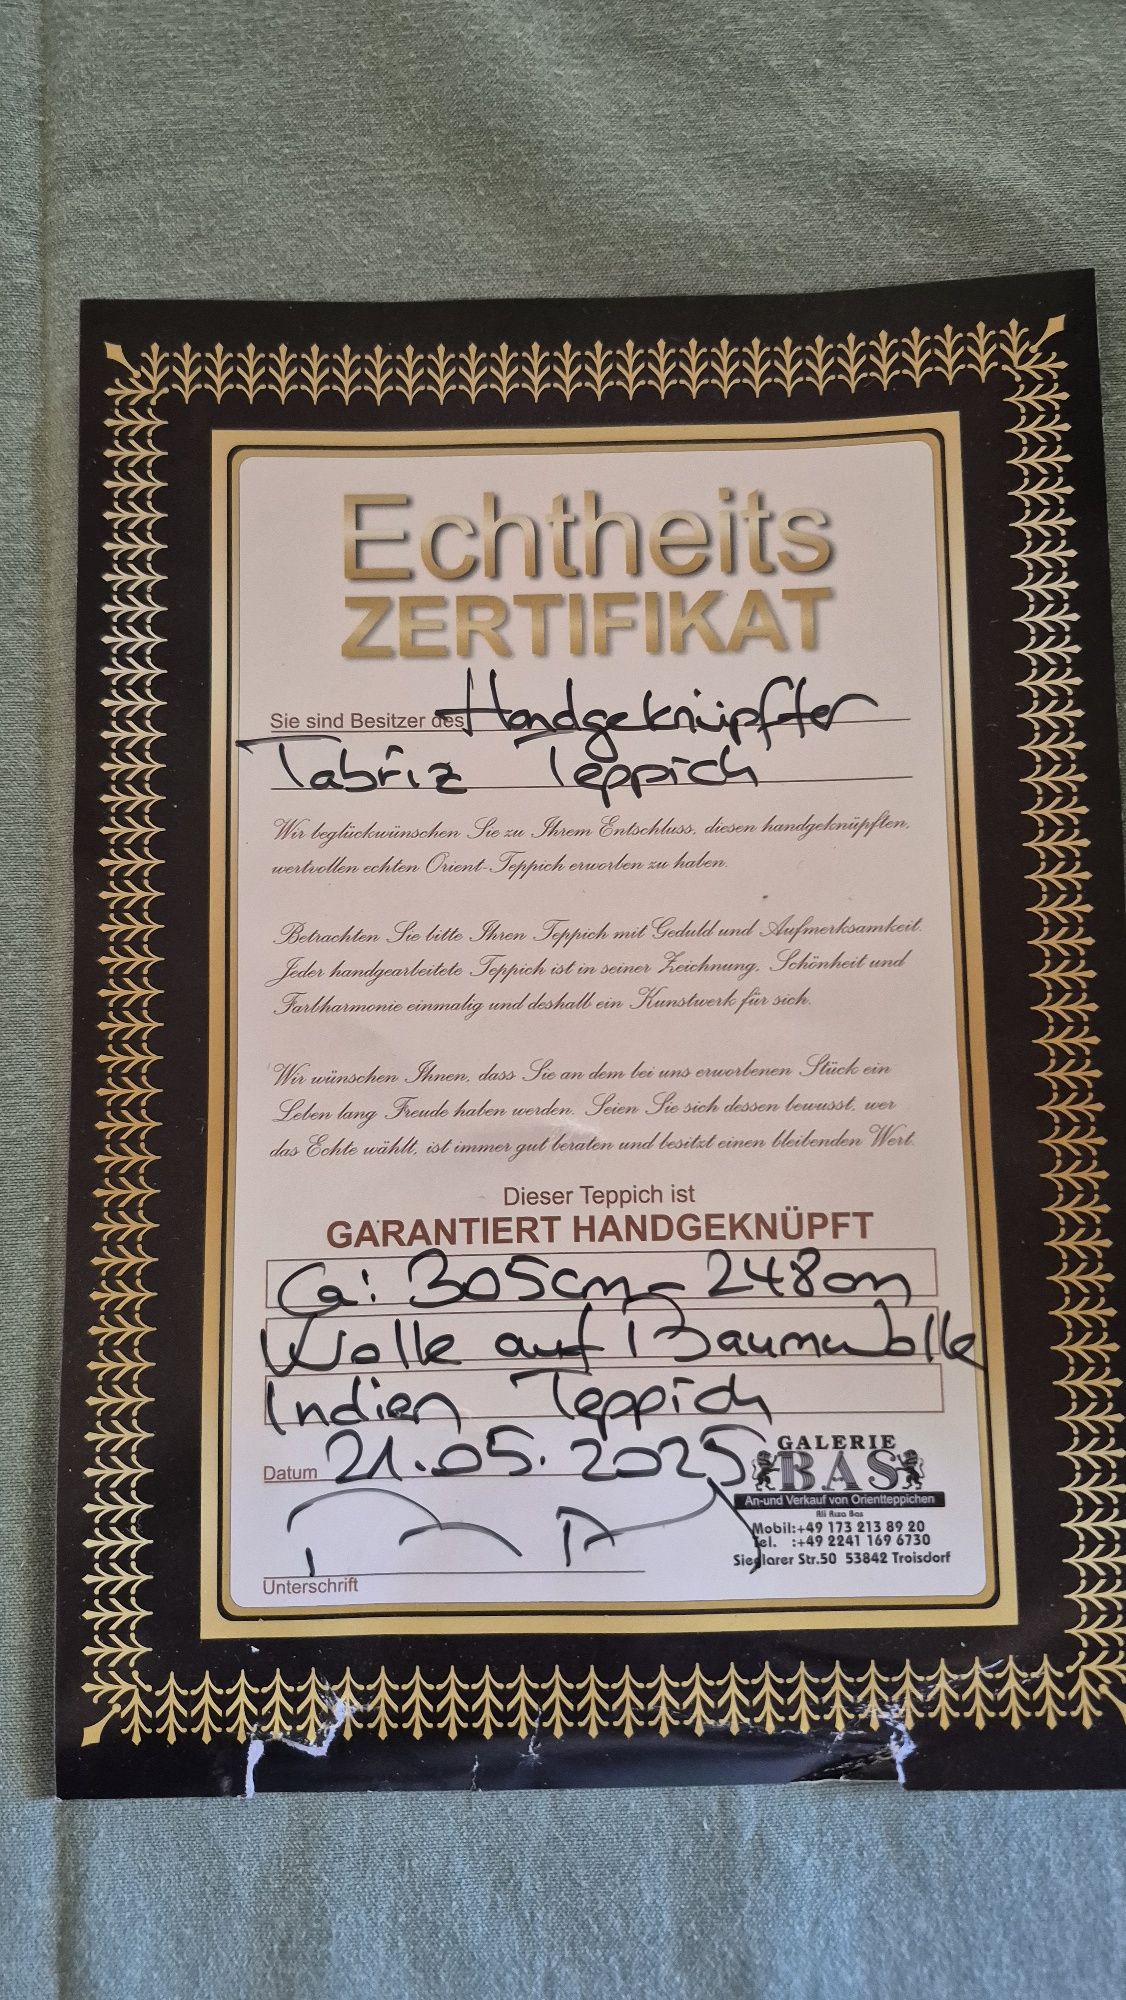 Echtheits
ZERTIFIKAT
Sie sind Besitzer des Handgeknüpfter
Tabriz Teppich
Wir beglückwünschen Sie zu Ihrem Entschluss, diesen handgeknüpften,
wertvollen echten Orient-Teppich erworben zu haben.
Betrachten Sie bitte Ihren Teppich mit Geduld und Aufmerksamkeit.
Jeder handgearbeitete Teppich ist in seiner Zeichnung, Schönheit und
Farbharmonie einmalig und deshalb ein Kunstwerk für sich.
Wir wünschen Ihnen, dass Sie an dem bei uns erworbenen Stück ein
Leben lang Freude haben werden. Seien Sie sich dessen bewusst, wer
das Echte wählt, ist immer gut beraten und besitzt einen bleibenden Wert.
Dieser Teppich ist
GARANTIERT HANDGEKNÜPFT
Ca: 305cm - 248cm
Wolle auf Baumwolle
Indien Teppich
Datum 21.05.2025
GALERIE
BAS
An-und Verkauf von Orientteppichen
Ali Riza Bas
Mobil:+49 173 213 89 20
Tel. :+49 2241 169 6730
Sieglarer Str.50 53842 Troisdorf
Unterschrift